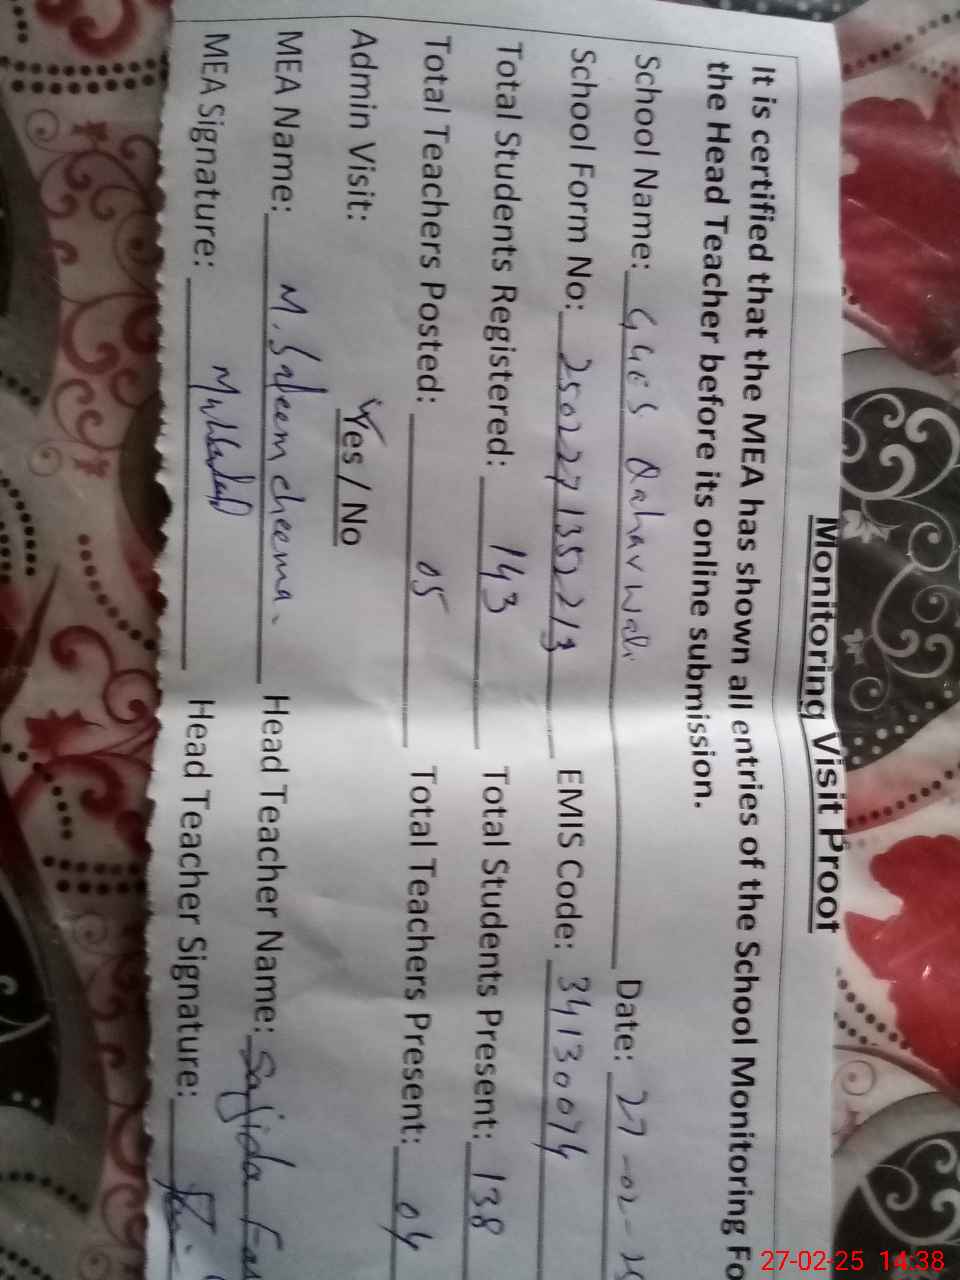 Monitoring Visit Proof
It is certified that the MEA has shown all entries of the School Monitoring Fo
the Head Teacher before its online submission.
School Name: GGES Qahar wali Date: 27-02-25
School Form No: 2502271352213 EMIS Code: 34130074
Total Students Registered: 143 Total Students Present: 138
Total Teachers Posted: 05 Total Teachers Present: 04
Admin Visit: Yes / No
MEA Name: M. Saleem cheema. Head Teacher Name: Sajida
MEA Signature: Head Teacher Signature:
27-02-25 14:38